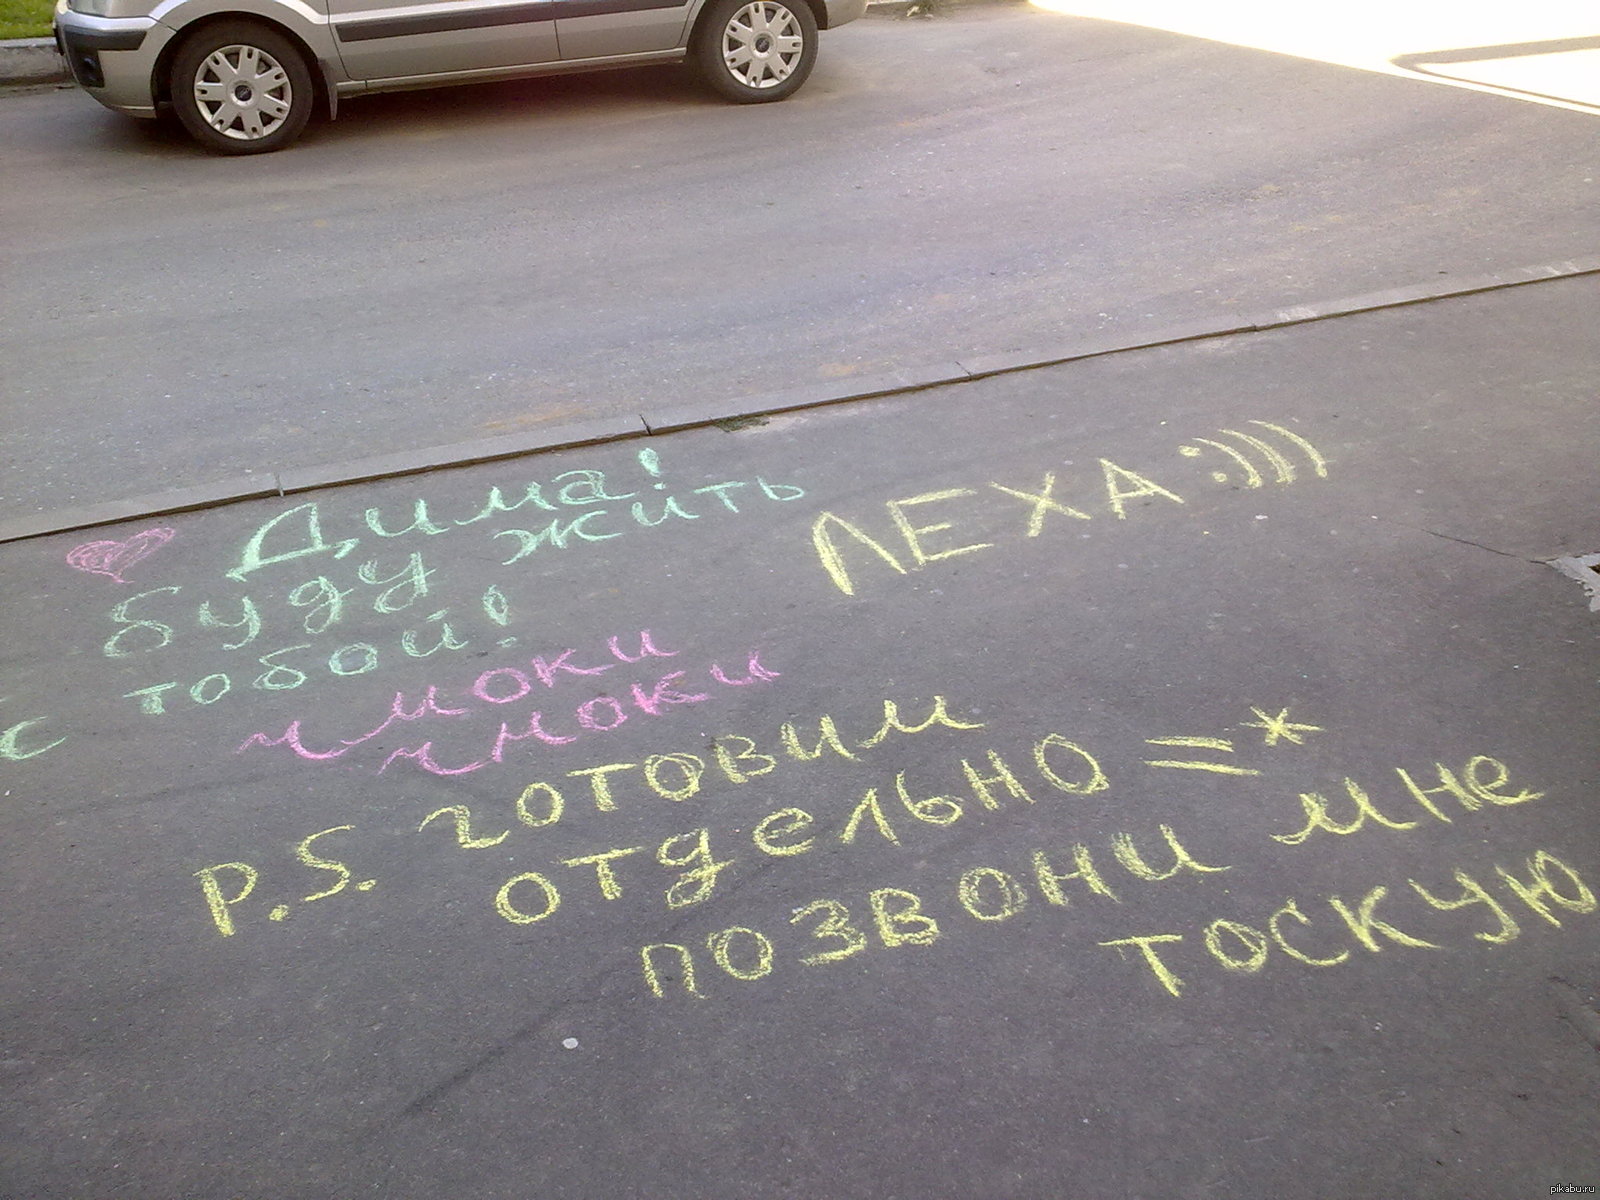 Дима!
буду жить
с тобой!
чмоки
чмоки
ЛЕХА:)))
P.S. готовим
отдельно =*
позвони мне
тоскую
pikabu.ru